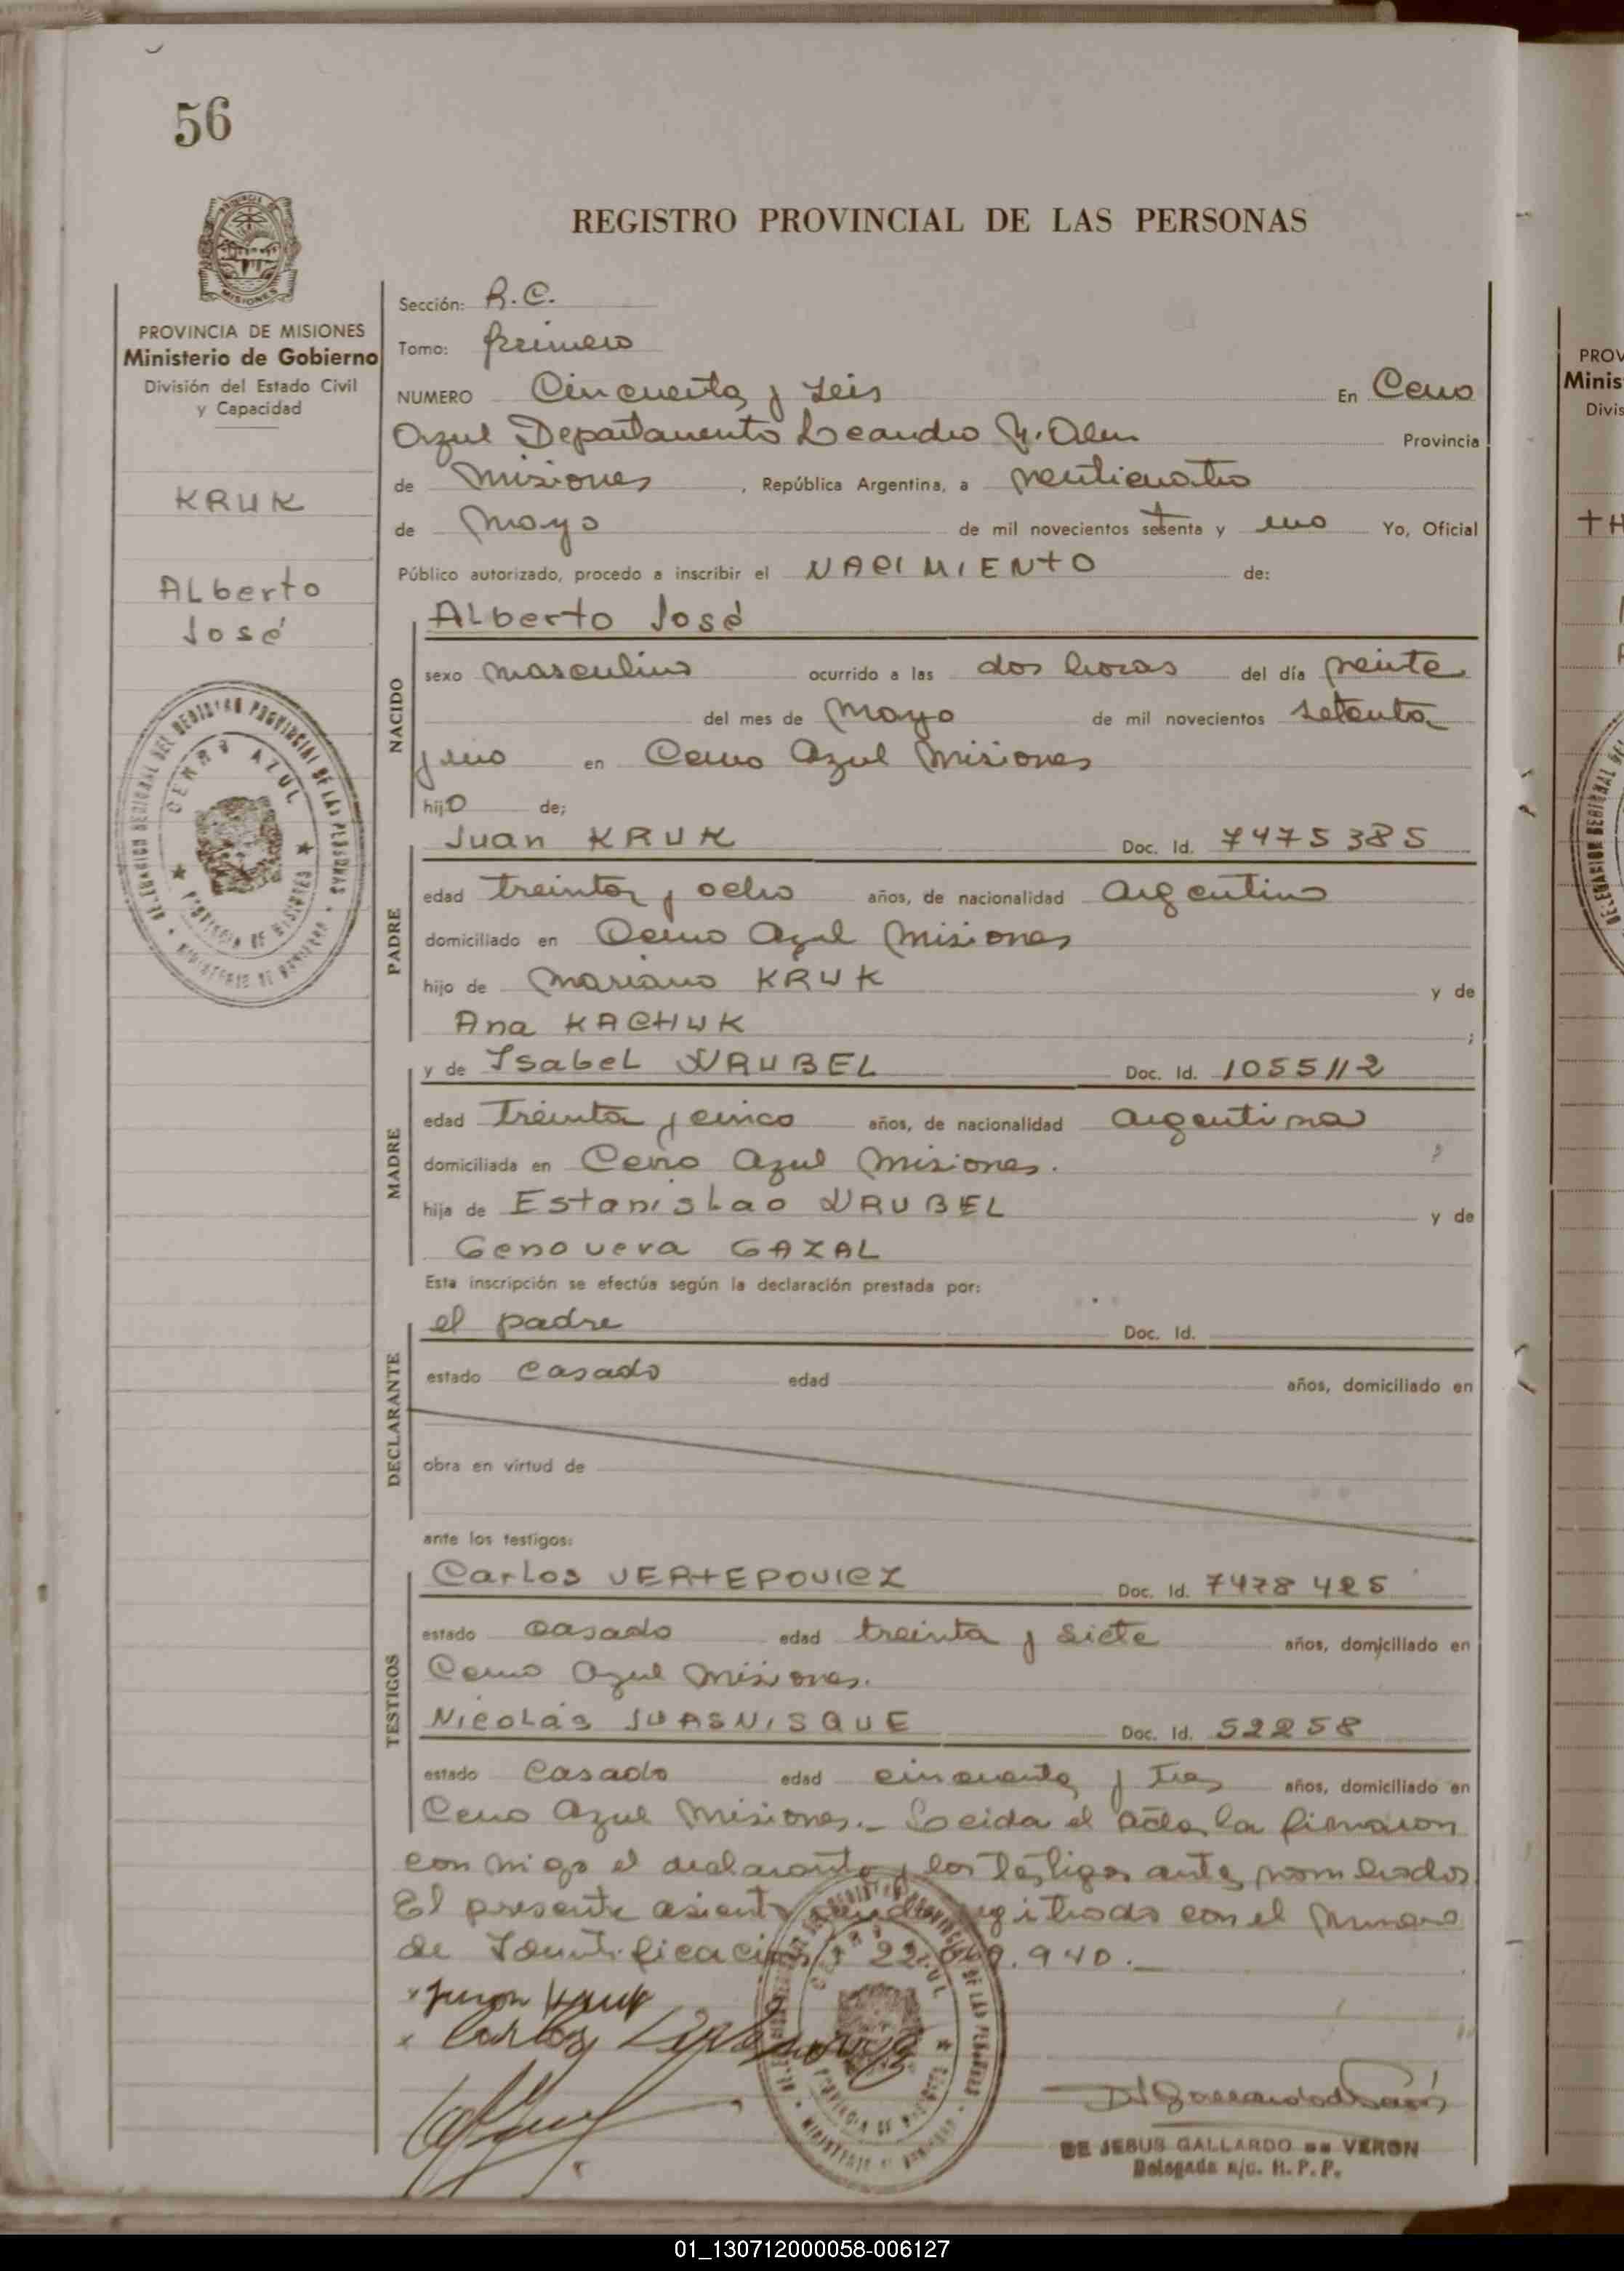 56
REGISTRO PROVINCIAL DE LAS PERSONAS
MISIONES
PROVINCIA DE MISIONES
Ministerio de Gobierno
División del Estado Civil
y Capacidad
KRUK
ALberto
José
CERRO AZUL
PROVINCIA DE MISIONES
Sección: R.C.
Tomo: primero
NUMERO Cincuenta y seis En Cerro
Azul Departamento Leandro N. Alem Provincia
de Misiones, República Argentina, a veinticuatro
de Mayo de mil novecientos setenta y uno Yo, Oficial
Público autorizado, procedo a inscribir el NACIMIENTO de:
NACIDO
ALberto José
sexo masculino ocurrido a las dos horas del día veinte
del mes de Mayo de mil novecientos setenta
y uno en Cerro Azul Misiones
hijo de;
PADRE
Juan KRUK Doc. Id. 7475385
edad treinta y ocho años, de nacionalidad argentino
domiciliado en Cerro Azul Misiones
hijo de Mariano KRUK y de
Ana KACHUK ;
MADRE
y de Isabel VRUBEL Doc. Id. 1055112
edad treinta y cinco años, de nacionalidad argentina
domiciliada en Cerro Azul Misiones.
hija de Estanislao VRUBEL y de
Genoveva GAZAL
Esta inscripción se efectúa según la declaración prestada por:
DECLARANTE
el padre Doc. Id.
estado casado edad años, domiciliado en
obra en virtud de
ante los testigos:
TESTIGOS
Carlos VERTEPOVICZ Doc. Id. 7478425
estado casado edad treinta y siete años, domiciliado en
Cerro Azul Misiones.
Nicolás JUASNISQUE Doc. Id. 52258
estado Casado edad cincuenta y tres años, domiciliado en
Cerro Azul Misiones.- Leida el acta la firmaron
con migo el declarante y los testigos antes nombrados
El presente asiento queda registrado con el numero
de Identificación 22. .940.-
Juan Kruk
Carlos
DE JESUS GALLARDO DE VERON
Delegada a/c. R. P. P.
PROV
Minis
Divis
01_130712000058-006127